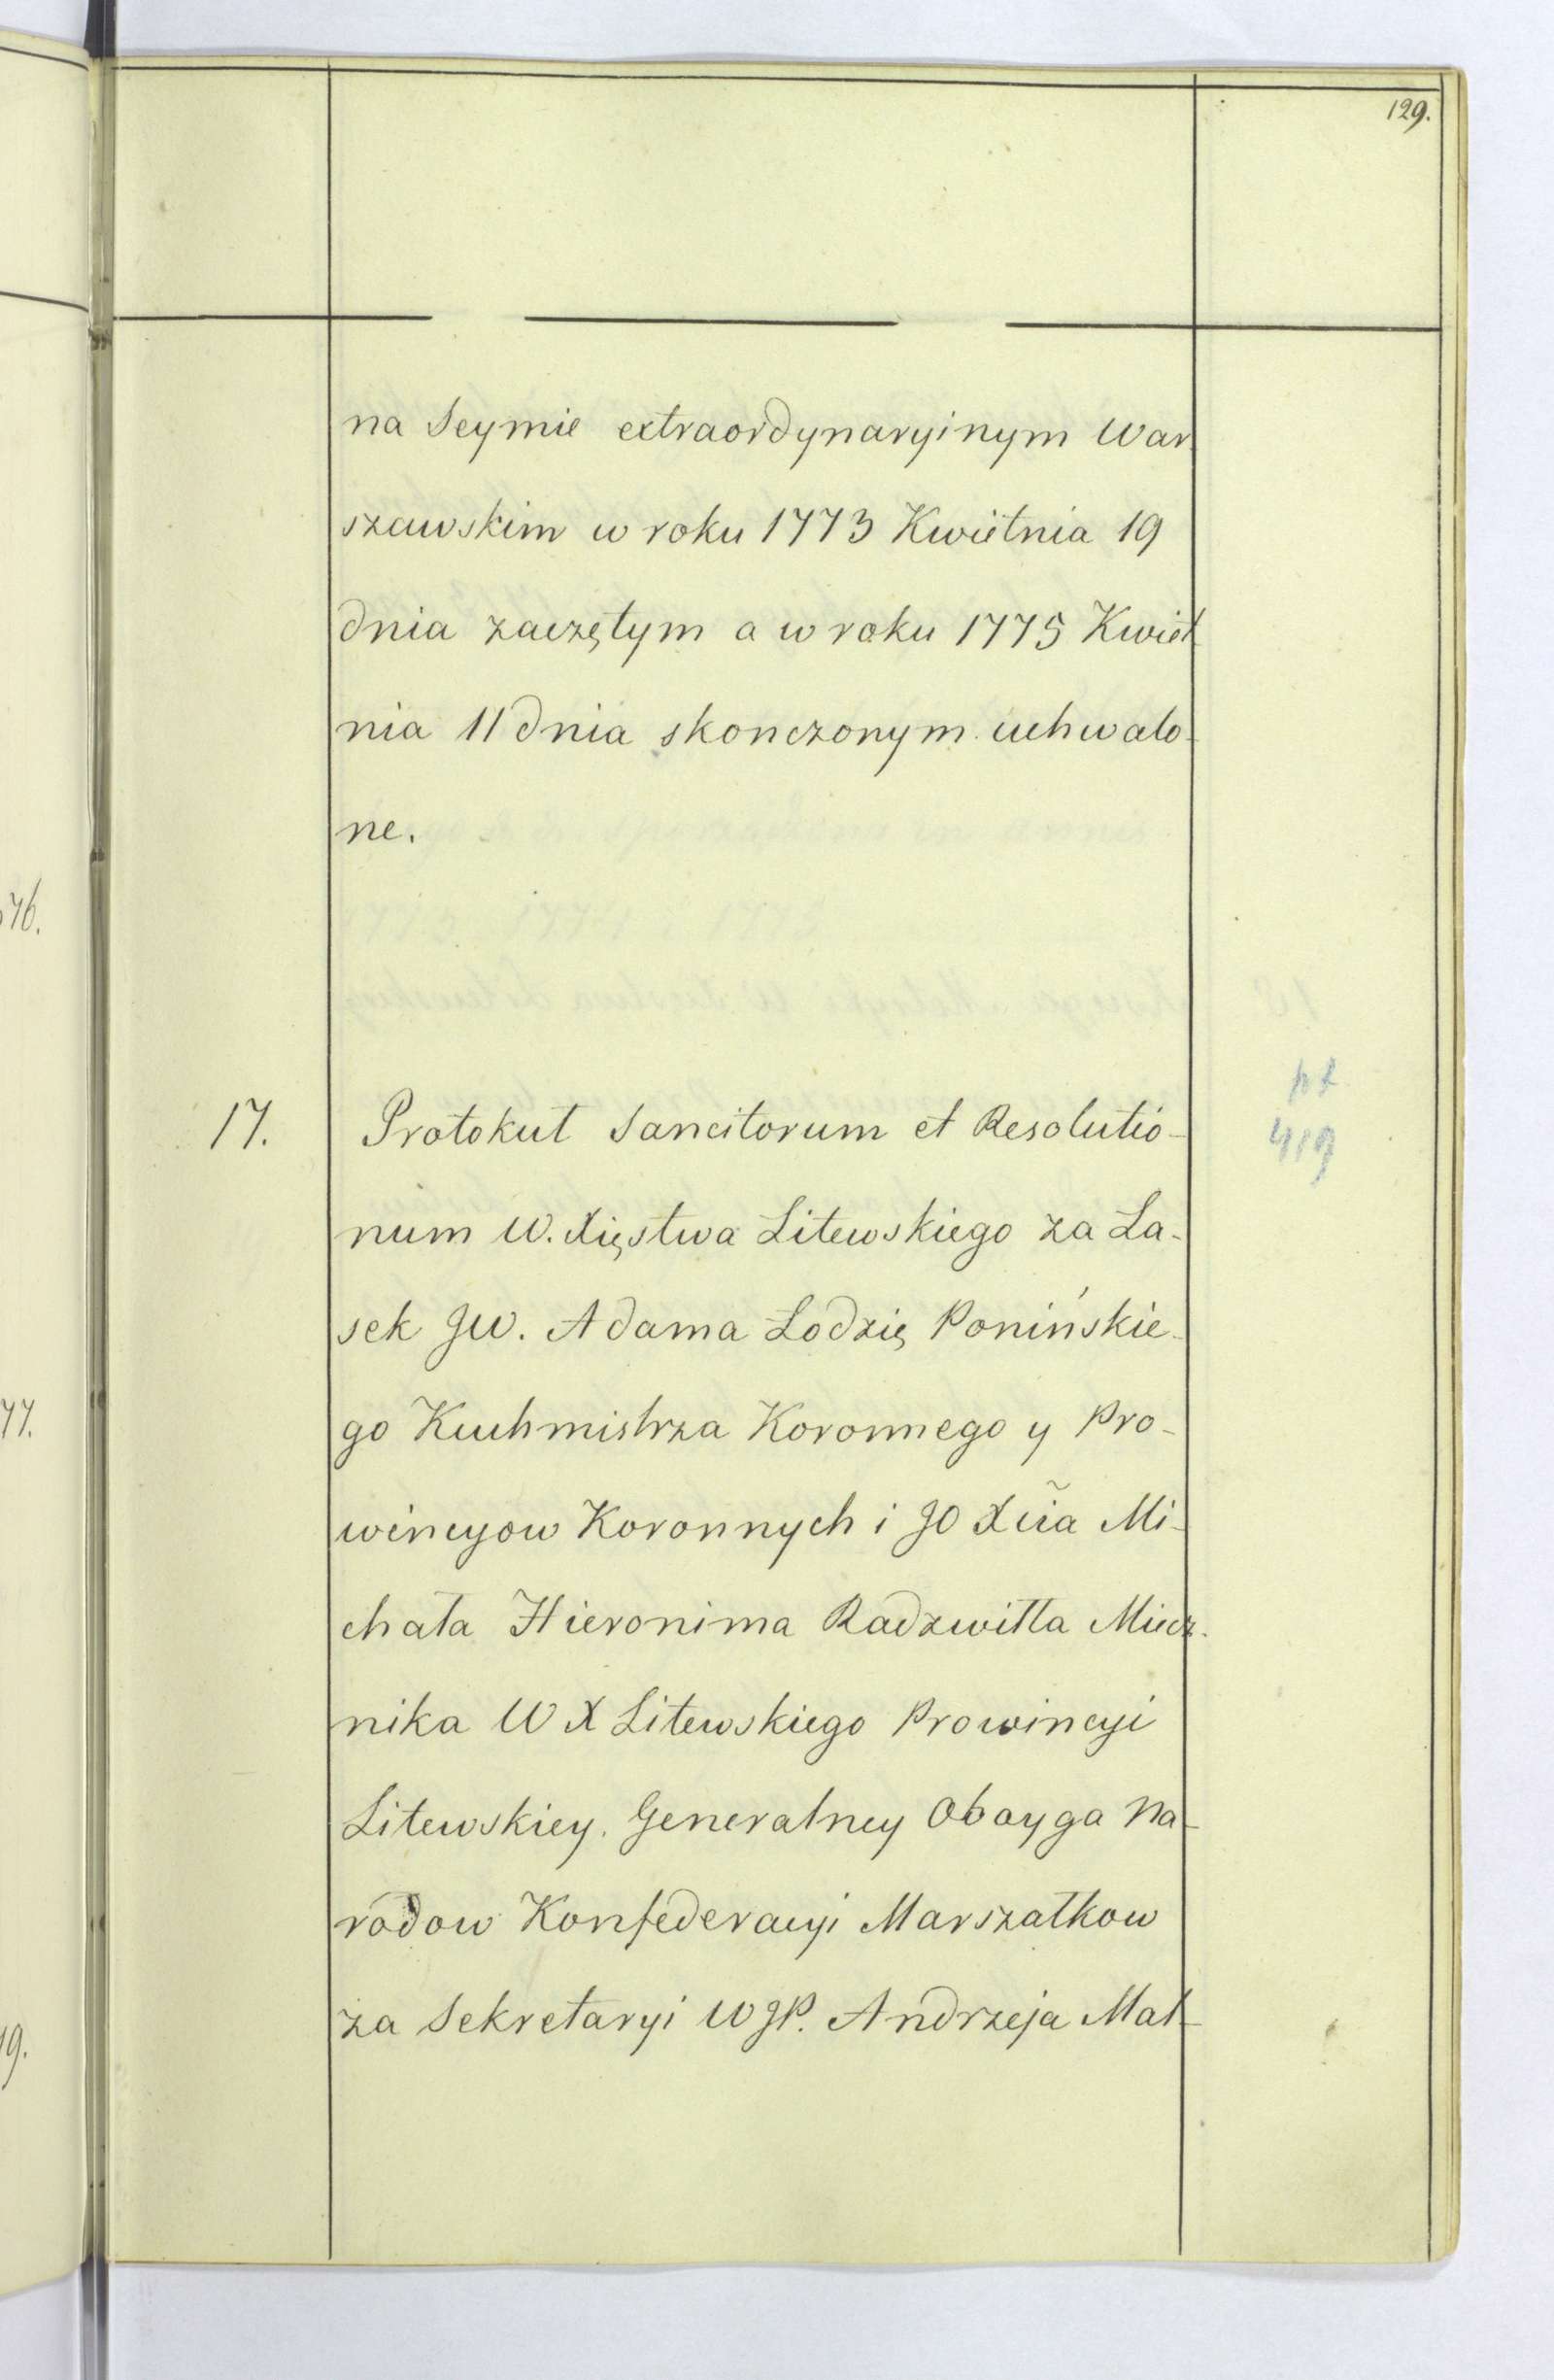 129.
na Seymie extraordynaryinym War
szawskim w roku 1773 Kwietnia 19
dnia zaczętym a w roku 1775 Kwiet
nia 11 dnia skonczonym uchwalo-
ne.
76.
17. Protokuł Sancitorum et Resolutio-
num W. Xięstwa Litewskiego za La-
sek JW. Adama Lodzię Ponińskie-
go Kuchmistrza Koronnego y Pro-
wincyow Koronnych i JO Xcĩa Mi-
chała Hieronima Radzwiłła Miecz-
nika W X Litewskiego Prowincyi
Litewskiey. Generalney Oboyga Na-
rodow Konfederacyi Marszałkow
za Sekretaryi WJP. Andrzeja Mat-
419
77.
19.